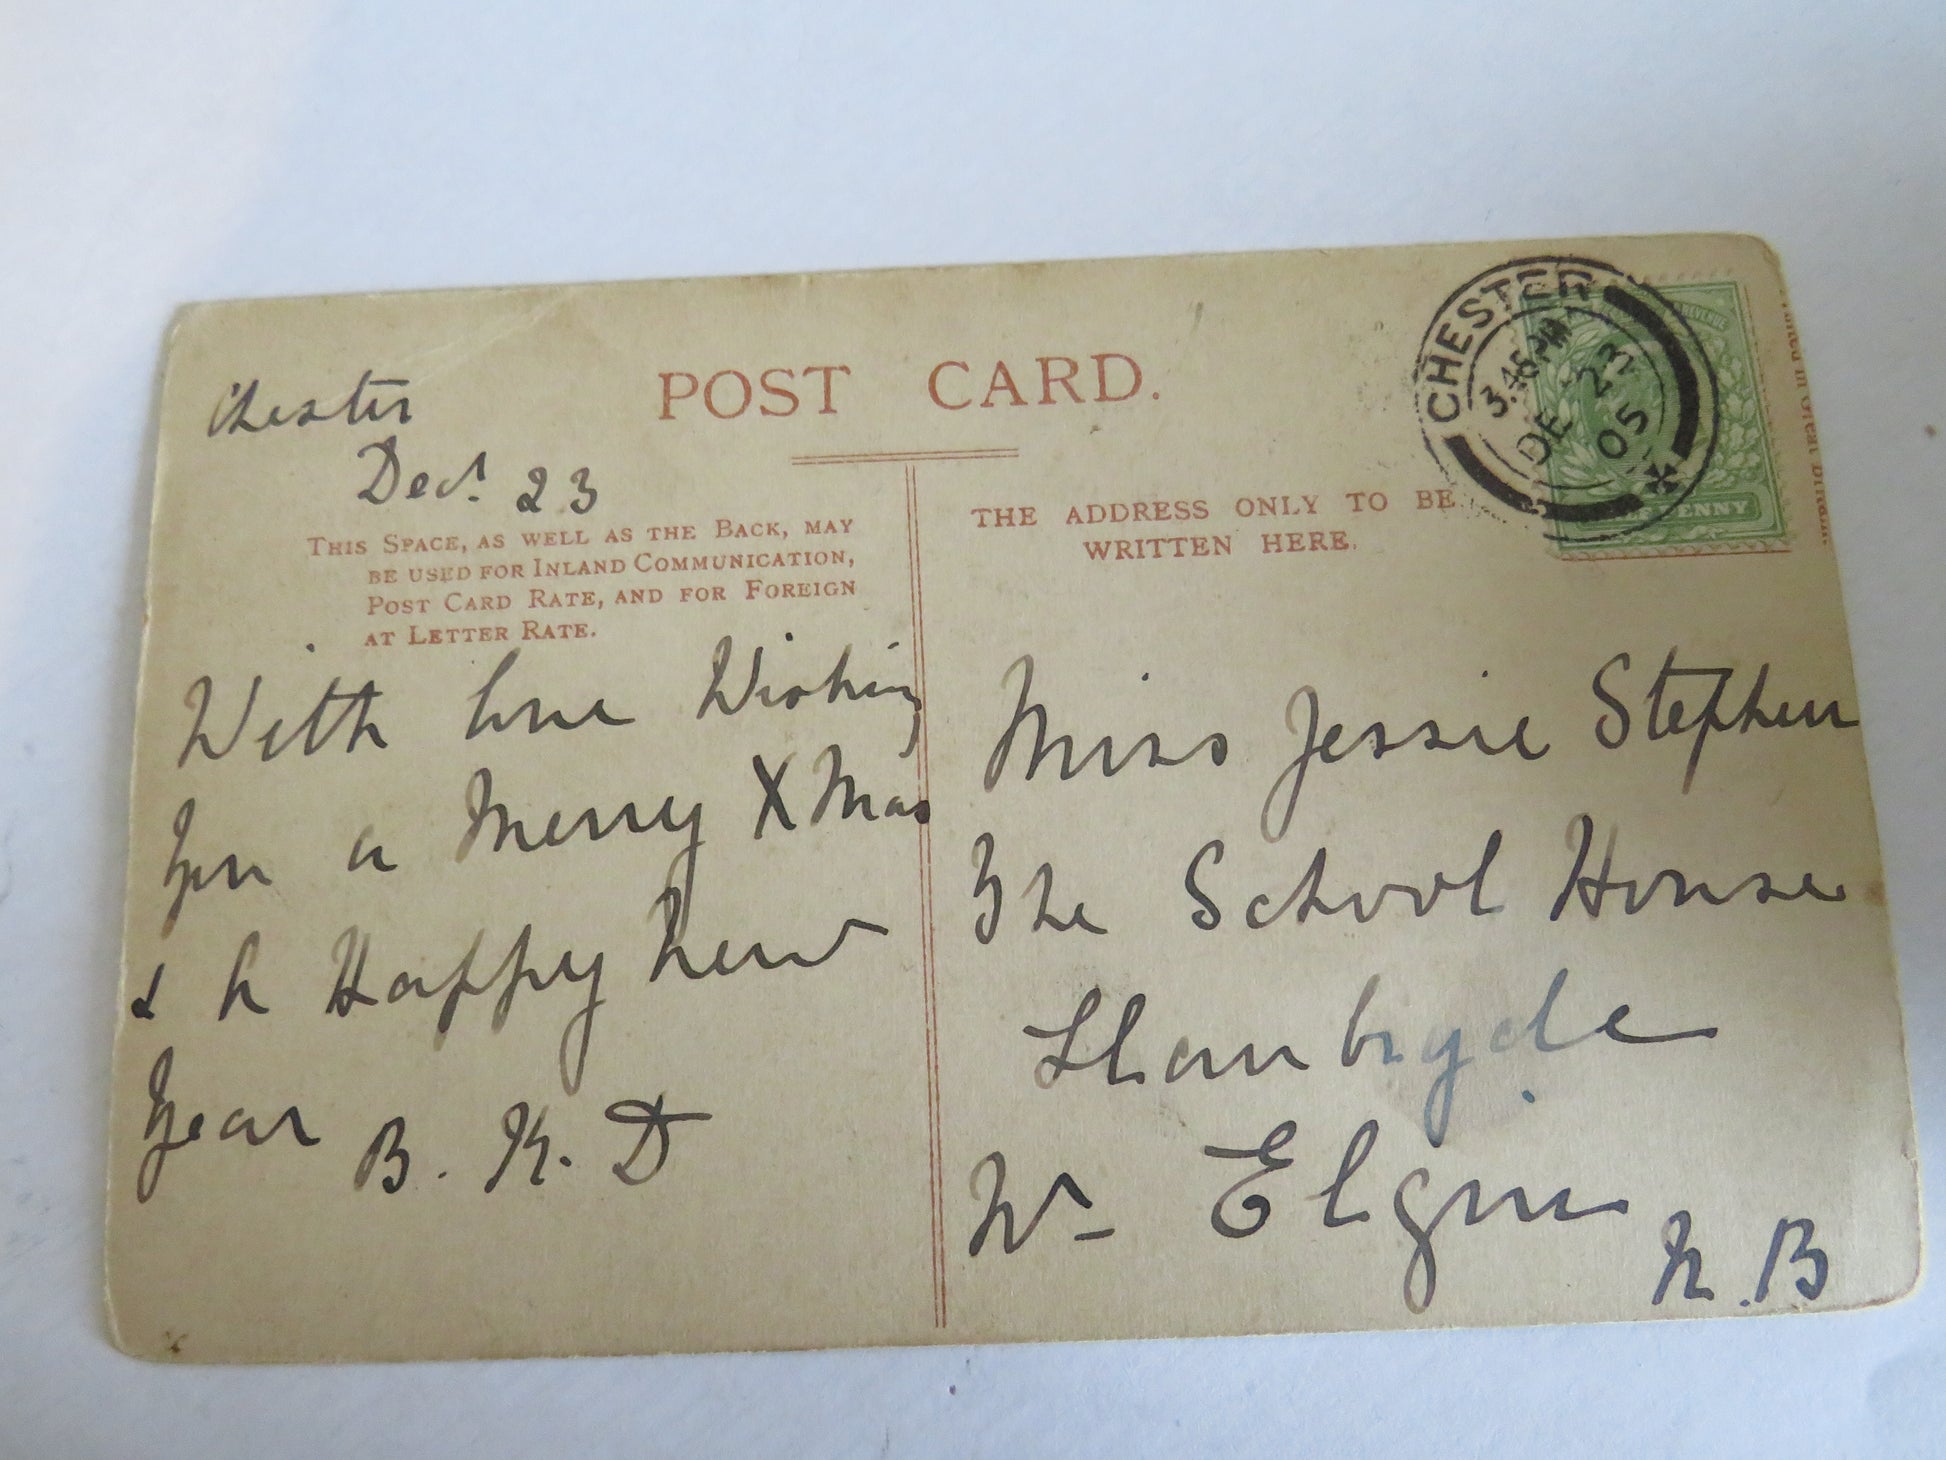 POST CARD.
Chester
Decr. 23
THIS SPACE, AS WELL AS THE BACK, MAY
BE USED FOR INLAND COMMUNICATION,
POST CARD RATE, AND FOR FOREIGN
AT LETTER RATE.
With love Wishing
You a Merry XMas
& A Happy New
Year
B. K. D
THE ADDRESS ONLY TO BE
WRITTEN HERE.
CHESTER
3.45PM
DE 23
05
REVENUE
PENNY
Miss Jessie Stephen
The School House
Llanbryde
Nr Elgin
N.B